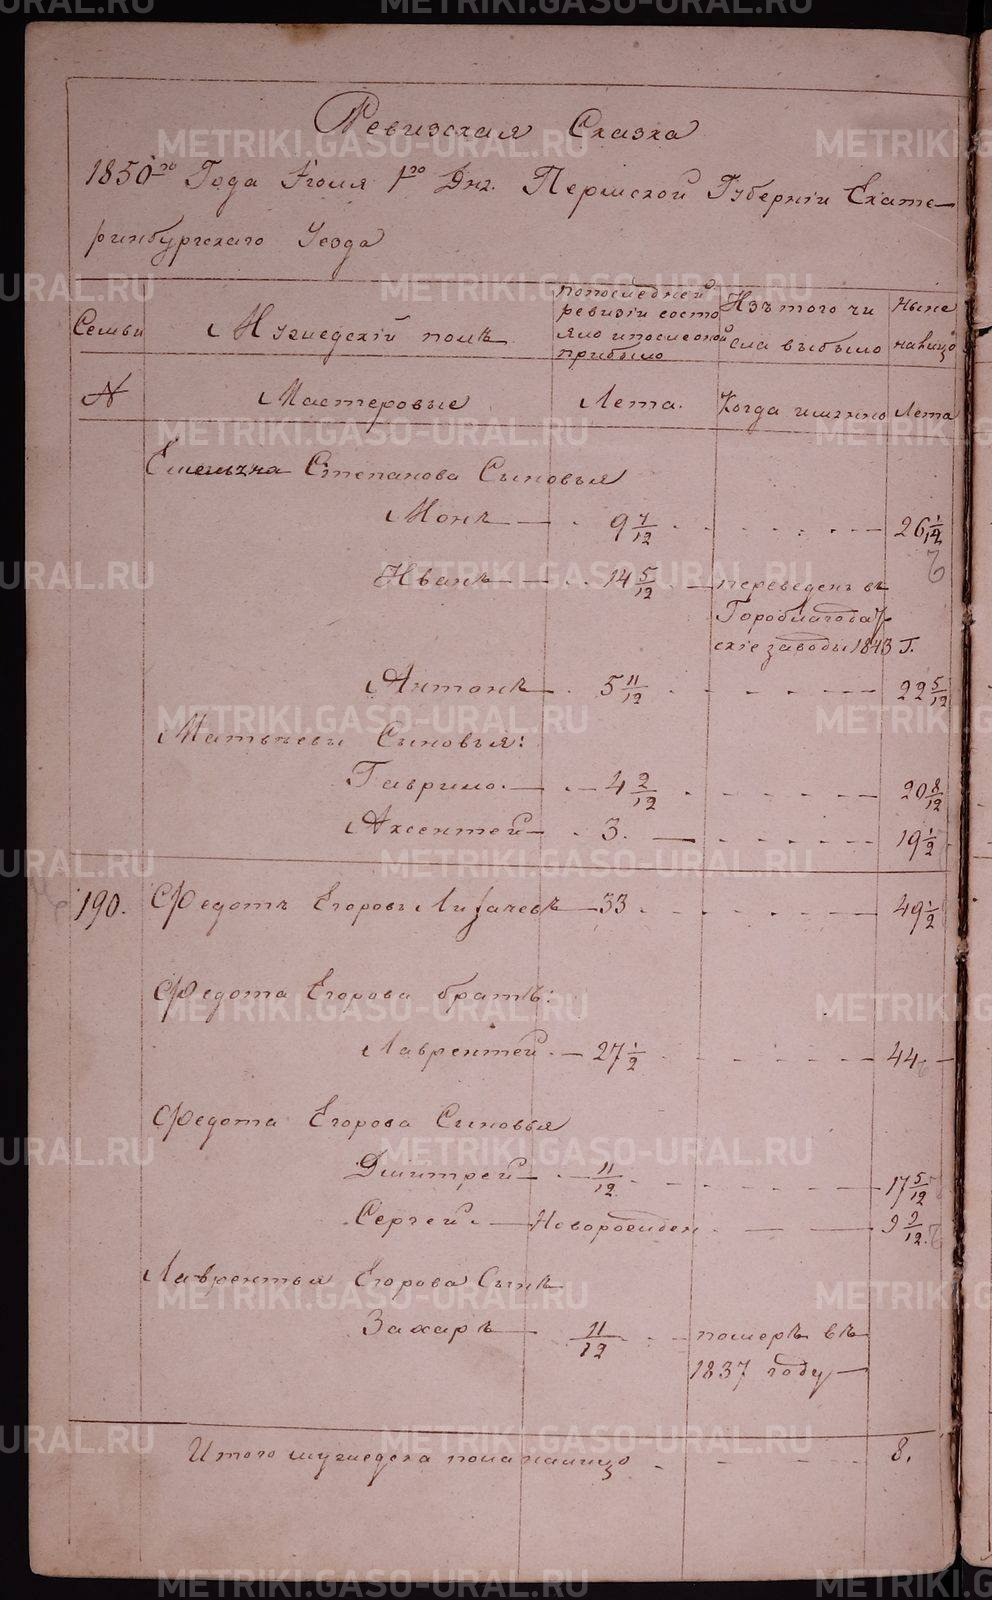 Ревизская Сказка
1850го Года Iюля 1го Дня. Пермской Губернiи Екате-
ринбургскаго Уезда
Семьи
Мужескiй полъ
попоследней ревизiи состо яло ипоследней прибыло
Изъ того чи сла выбыло
Ныне налицо
N
Мастеровые
Лета.
Когда имянно
Лета
Степанова Сыновья
Монъ — 9 7/12 — 26
Иванъ — 14 5/12 — переведенъ въ
Гороблагодат-
скiе заводы 1843 г.
Антонъ — 5 11/12 — 22 5/12
Матвеевы Сыновья:
Гаврило. — 4 2/12 — 20 8/12
Аксентей — 3. — 19 1/2
190. Федотъ Егоровъ Лихачевъ — 33 — 49 1/2
Федота Егорова братъ:
Лаврентей. — 27 1/2 — 44
Федота Егорова Сыновья
Дмитрей — 11/12 — 17 5/12
Сергей. — Новорожден — 9/12
Лаврентья Егорова Сынъ
Захаръ — 11/12 — померъ въ
1837 году —
Итого мужеска пола налицо — 8.
METRIKI.GASO-URAL.RU